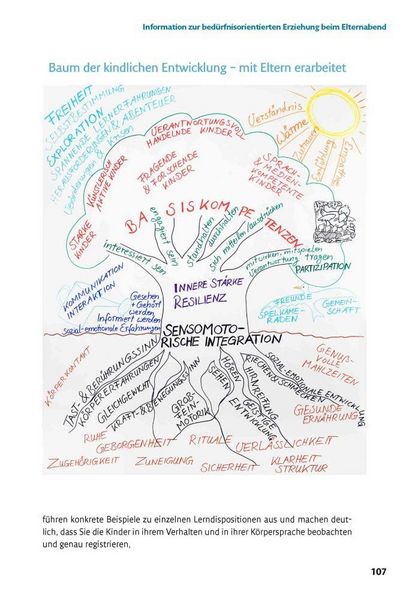 Information zur bedürfnisorientierten Erziehung beim Elternabend
Baum der kindlichen Entwicklung – mit Eltern erarbeitet
FREIHEIT
SELBSTBESTIMMUNG
EXPLORATION
SPANNENDE LERNERFAHRUNGEN
HERAUSFORDERUNGEN & ABENTEUER
VERANTWORTUNGSVOLL
HANDELNDE KINDER
Verständnis
Wärme
Zutrauen
Empathie
KÜNSTLERISCH
AKTIVE KINDER
FRAGENDE
& FORSCHENDE
KINDER
SPRACH-
& MEDIEN-
KOMPETENTE
KINDER
STARKE
KINDER
BASISKOMPETENZEN
interessiert sein
engagiert sein
standhalten
durchhalten
sich mitteilen/ausdrücken
mitwirken, mitspielen
Verantwortung tragen
PARTIZIPATION
KOMMUNIKATION
INTERAKTION
Gesehen
+ Gehört
werden
Informiert werden
sozial-emotionale Erfahrungen
INNERE STÄRKE
RESILIENZ
FREUNDE
SPIELKAME-
RADEN
GEMEIN-
SCHAFT
SENSOMOTO-
RISCHE INTEGRATION
KÖRPERKONTAKT
TAST- & BERÜHRUNGSSINN
KÖRPERERFAHRUNGEN
GLEICHGEWICHT
KRAFT- & BEWEGUNGSSINN
GROB-
FEIN-
MOTORIK
SEHEN
HÖREN
RIECHEN & SCHMECKEN
HIRNREIFUNG
GEISTIGE
ENTWICKLUNG
SOZIAL-EMOTIONALE ENTWICKLUNG
GENUSS-
VOLLE
MAHLZEITEN
GESUNDE
ERNÄHRUNG
RUHE
GEBORGENHEIT
RITUALE
VERLÄSSLICHKEIT
ZUGEHÖRIGKEIT
ZUNEIGUNG
SICHERHEIT
KLARHEIT
STRUKTUR
führen konkrete Beispiele zu einzelnen Lerndispositionen aus und machen deut-
lich, dass Sie die Kinder in ihrem Verhalten und in ihrer Körpersprache beobachten
und genau registrieren.
107